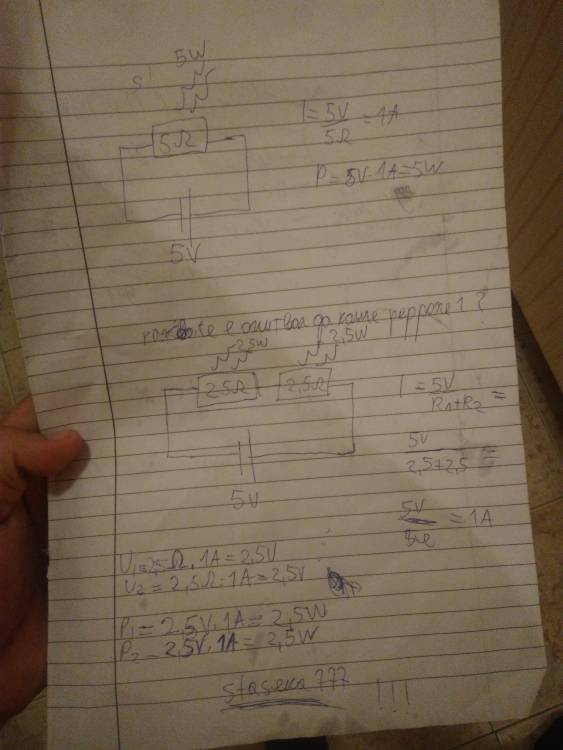 5W
5Ω
5V
I = 5V / 5Ω = 1A
P = 5V · 1A = 5W
е опитвал да каже 1 ?
2,5W 2,5W
2.5Ω 2,5Ω
5V
I = 5V / R1+R2 =
5V / 2,5+2,5 =
5V = 1A
U1 = 2,5Ω . 1A = 2,5V
U2 = 2,5Ω · 1A = 2,5V
P1 = 2,5V . 1A = 2,5W
P2 = 2,5V . 1A = 2,5W
!!!